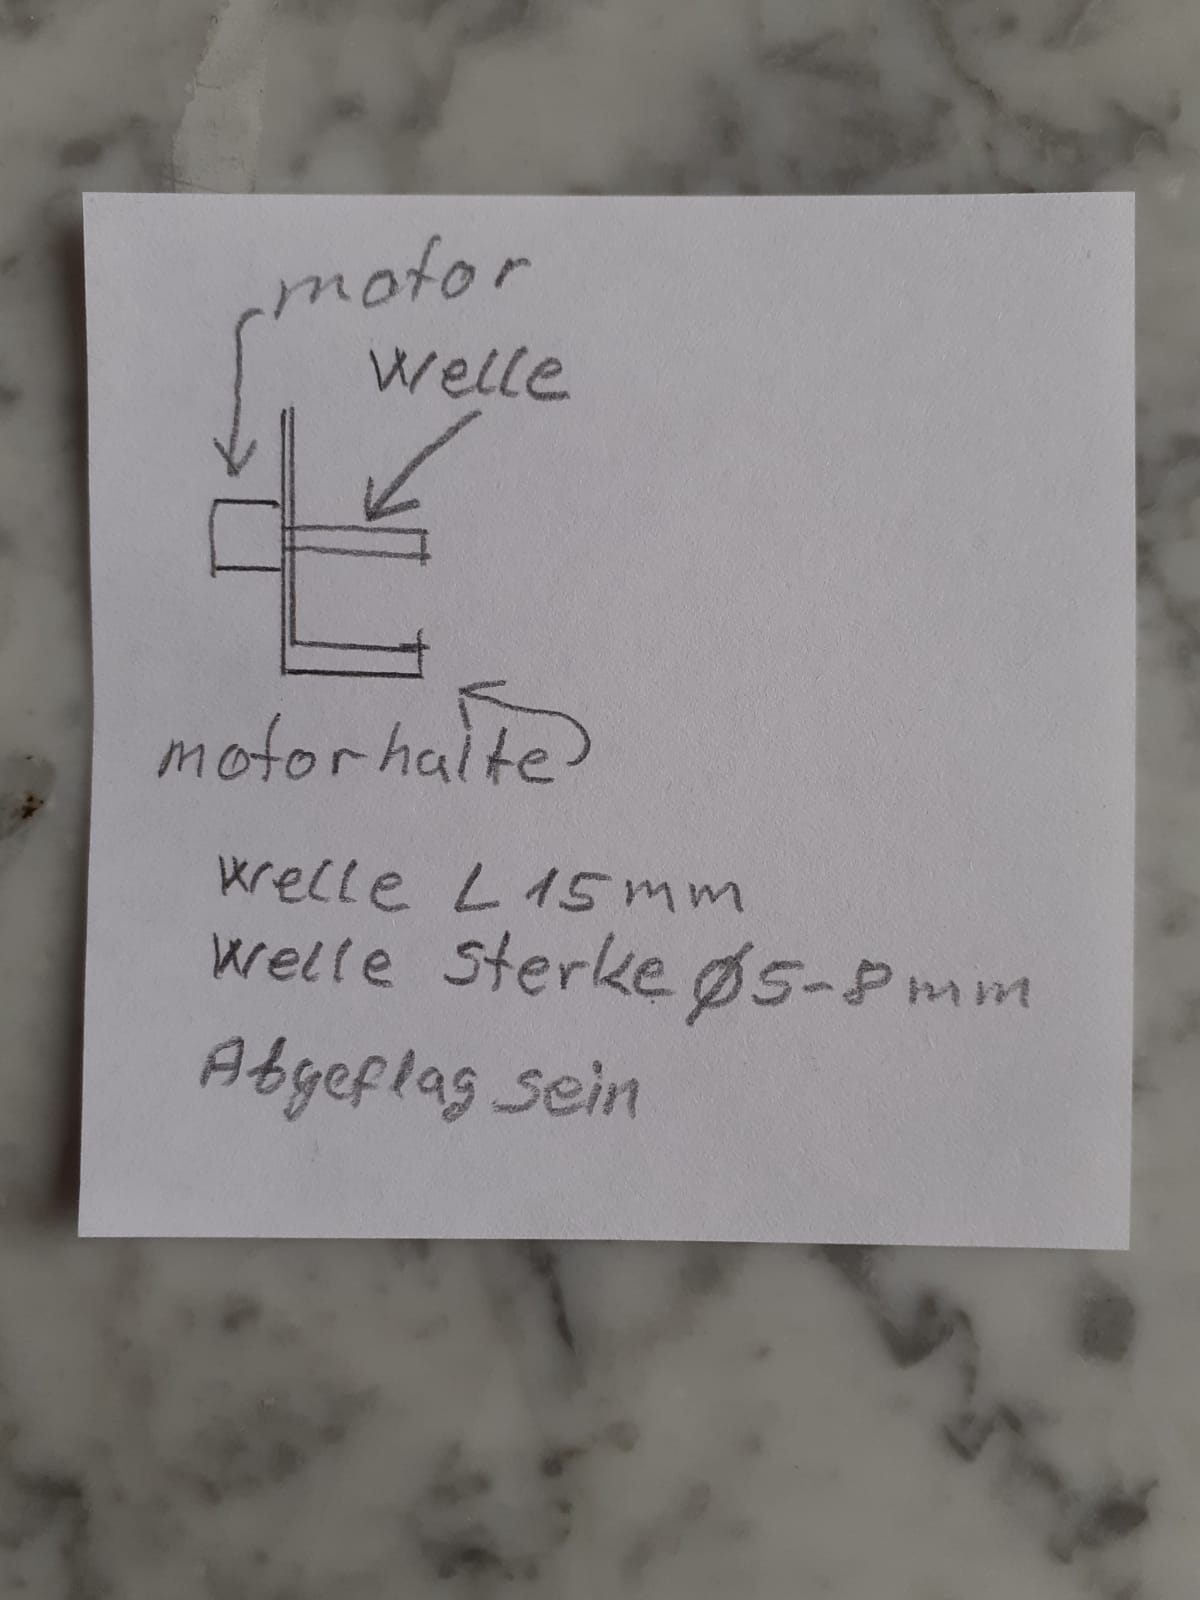 motor
Welle
motorhalte
Welle L 15mm
Welle Sterke Ø5-8mm
Abgeflag sein